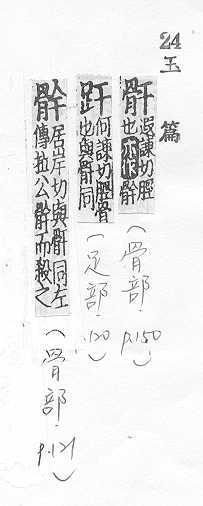 24
玉篇
骭 遐諫切脛
也
(骨部.p.150)
何諫切脛骨
也與骭同
(足部.120)
居岸切與骭同左
傳拉公骭而殺之
(骨部.p.121)